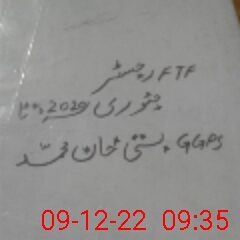 FTF رجسٹر
جنوری 2020
GGPS بستی خان محمد
09-12-22 09:35